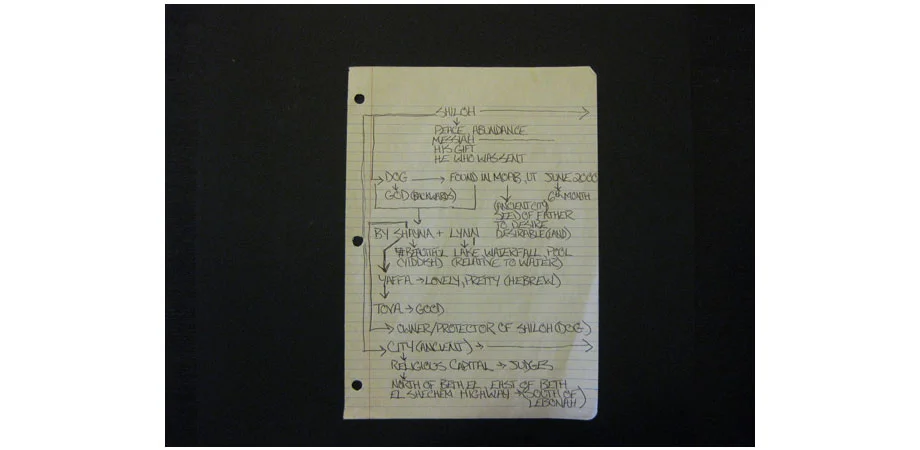 SHILOH
PEACE, ABUNDANCE
MESSIAH
HIS GIFT
HE WHO WAS SENT
DOG → FOUND IN MOAB, UT JUNE 2000
GOD (BACKWARDS) 6th MONTH
(ANCIENT CITY)
SEED OF FATHER
TO DESIRE
DESIRABLE (LAND)
BY SHAYNA + LYNN
BEAUTIFUL LAKE, WATERFALL, POOL
(YIDDISH) (RELATIVE TO WATER)
YAFFA → LOVELY, PRETTY (HEBREW)
TOVA → GOOD
OWNER/PROTECTOR OF SHILOH (DOG)
CITY (ANCIENT) →
RELIGIOUS CAPITAL → JUDGES
NORTH OF BETH EL, EAST OF BETH
EL SHECHEM HIGHWAY → SOUTH OF
LEBONAH)